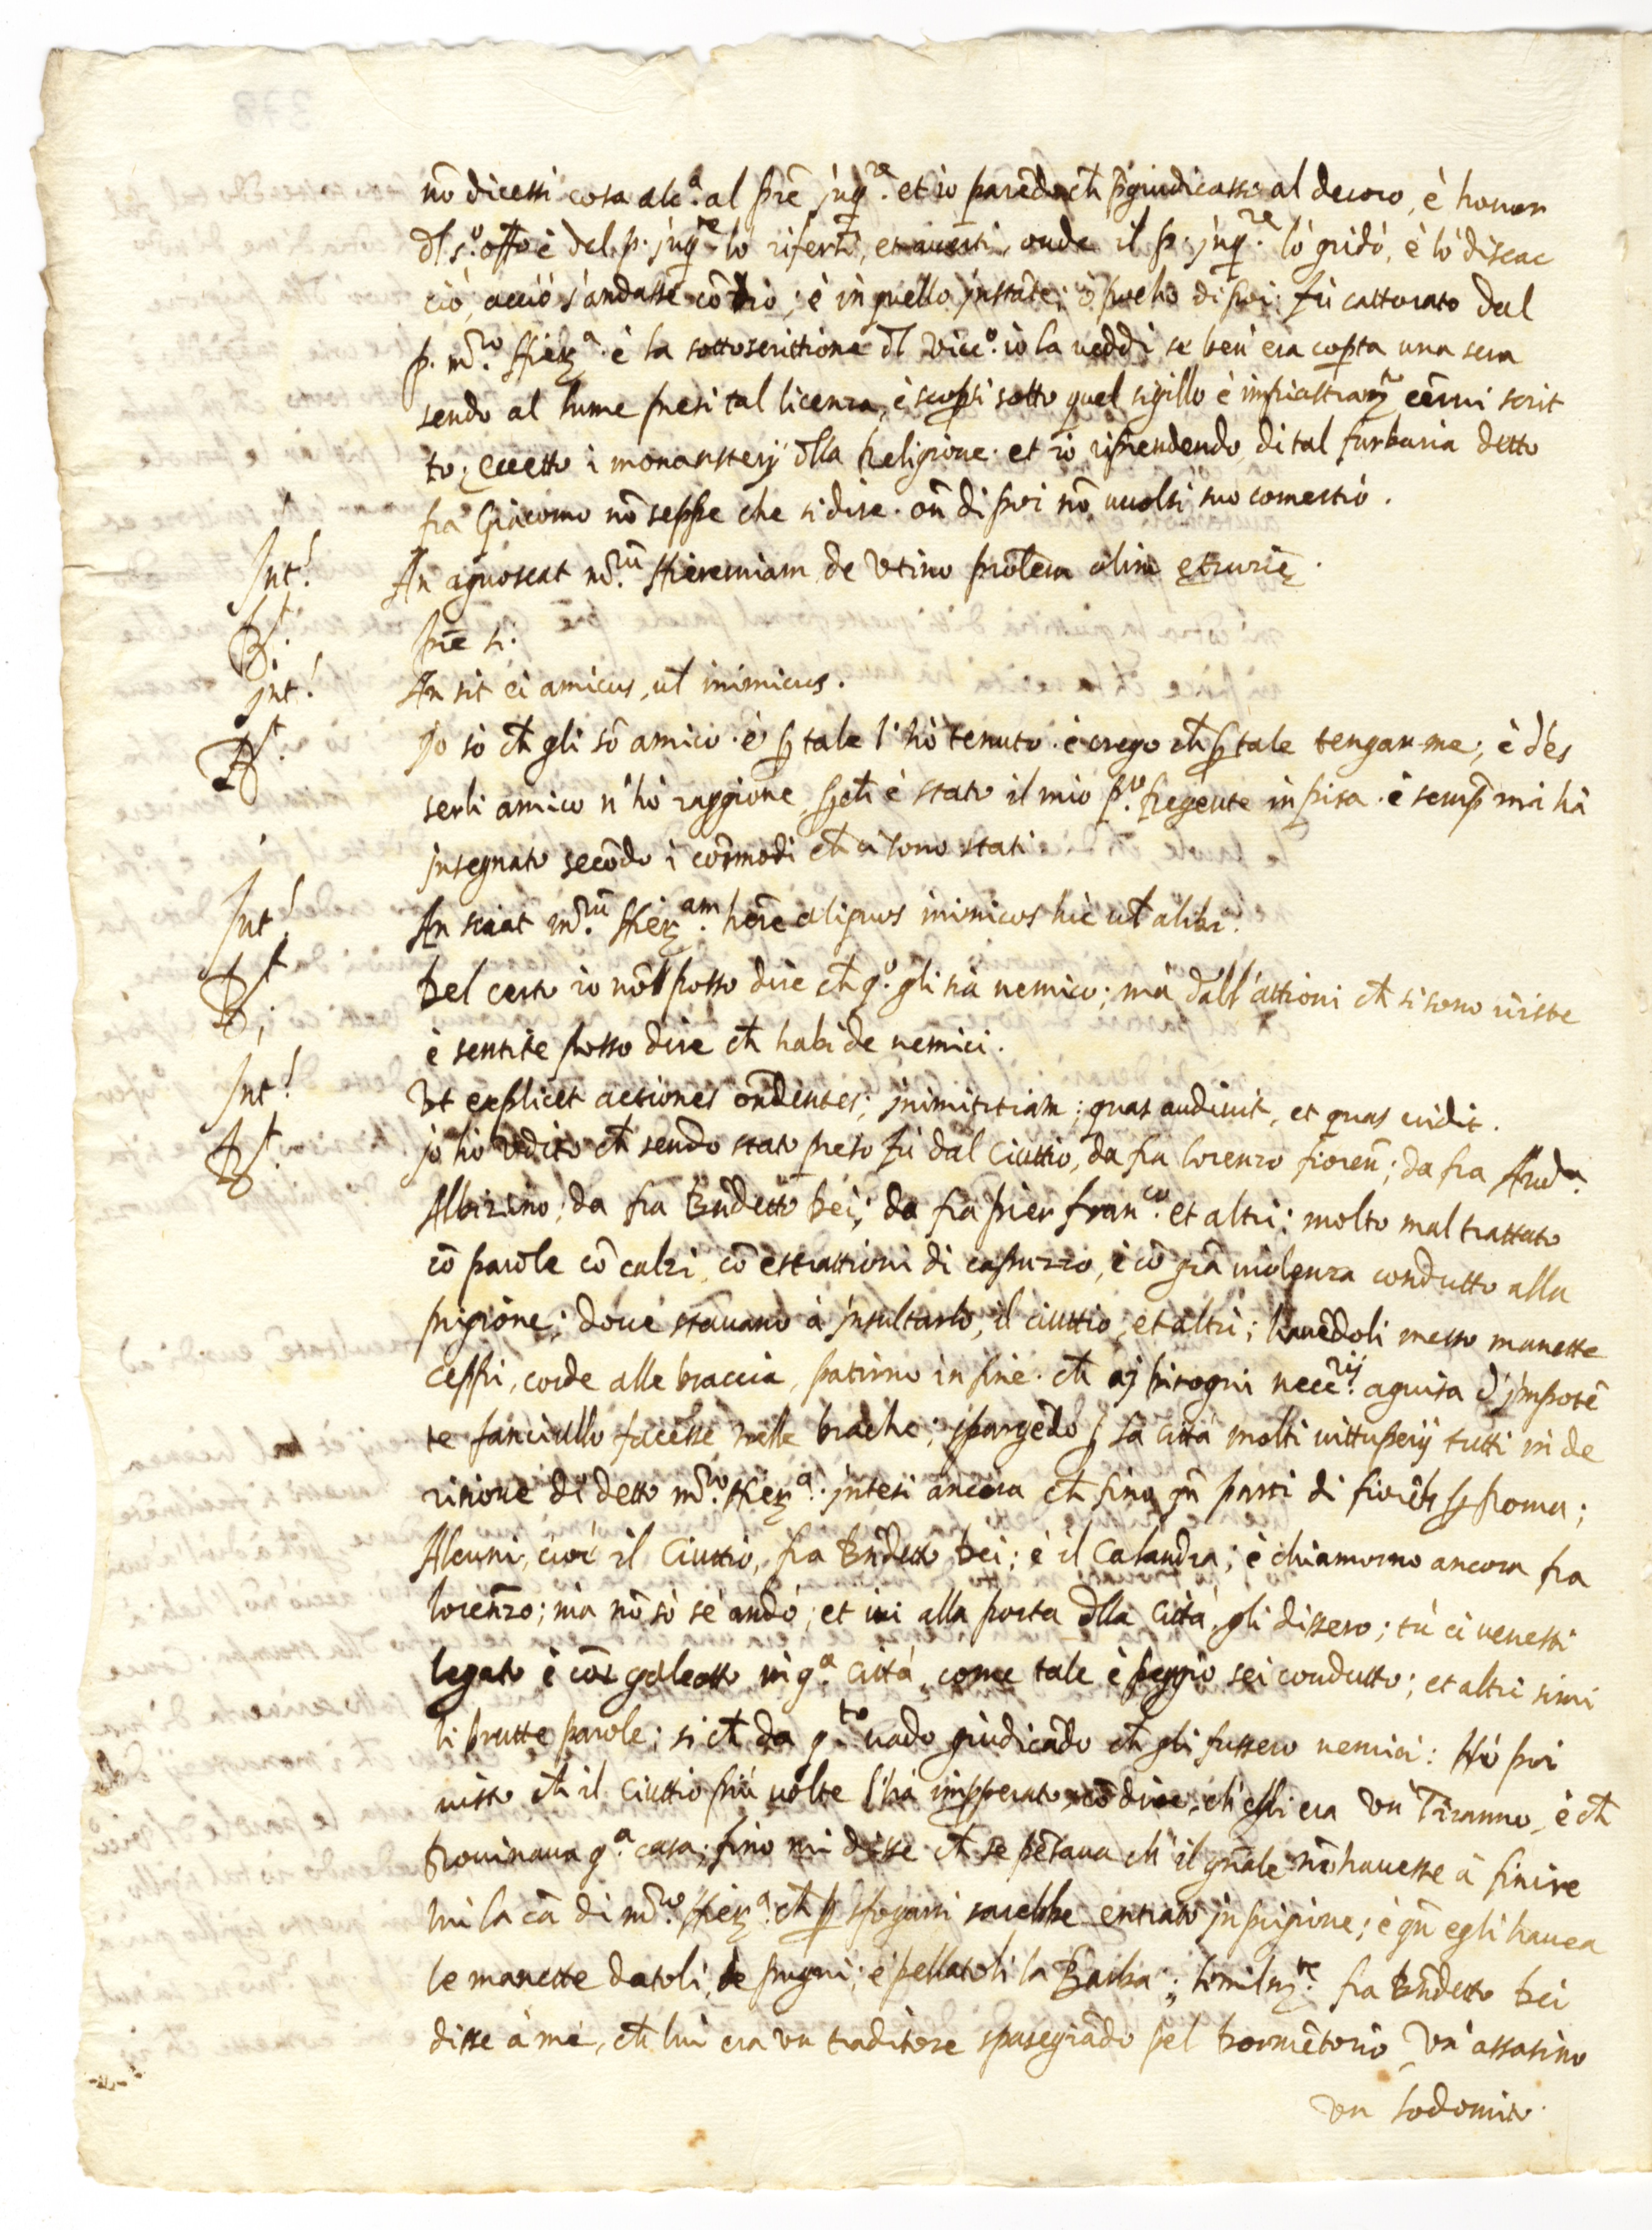 nõ dicessi cosa alc.ª al prẽ jnq.re et io parẽdo ch̃ p̃giudicasse al decoro, è honor
dl s.º offº è del p. jnq.re lo riferì, et auertì, onde il p. jnq.re lo gridò, è lo discac
ciò, acciò s'andasse cõ dio; è in quello jnstãte; ò pocho di poi fù catturato dal
p. m.ro Hier.ª è la sottoscrittione dl Vicc.º io la ueddi se ben era cop̃ta una sera
sendo al lume presi tal licenza, è scop̃si sotto quel sigillo è inpiastram.to eẽrui scrit
to; eccetto i monasterij dlla Religione. et io riprendendo di tal furbaria detto
fra Giacomo nõ seppe che si dire. on di poi nõ uuolsi suo comertio.
Int! An agnoscat m.rũ Hieremiam de Utino prõlem olim etrurię.
R.t prẽ si.
jnt! An sit ei amicus, ut̃ inimicus.
R.t Jo sò ch̃ gli sõ amico. è p̃ tale l'hò tenuto. è crego ch̃ p̃ tale tengar me; è d'es
serli amico n'hò raggione p̃ch̃ è stato il mio p.º Regente in pisa. è semp̃ mi hà
jnsegnato secõdo i cõmodi ch̃ ci sono stati
Int! An sciat m.rũ Hier.am hẽre aliquos inimicos hic ut̃ alibi.
R.t Del certo io nõ posso dire ch̃ q.º gli sia nemico; mà dall'attioni ch̃ si sono uiste
è sentite posso dire ch̃ habi de nemici.
Int! Ut explicet actiones oñdentes; jnimicitiam; quas audiuit, et quas uidit.
R.t jo hò udito ch̃ sendo stato preso fù dal Ciuttio, da fra lorenzo fioreñ; da fra And.ª
Albizino; da fra Bñdetto Dei; da fra pier fran.co et altri; molto mal trattato
cõ parole cõ calzi, cõ estrattioni di capuzzo, è cõ grã uiolenza condutto alla
prigione; doue stauano à jnsultarlo, il ciuttio, et altri; hauẽdoli messo manette
ceppi, corde alle braccia, patirno in fine. ch̃ aj bisogni necc.rij aguisa d'jmpotẽ
te fanciullo facesse nelle brache; spargẽdo p̃ la Città molti uittuperij tutti in de
risione di detto m.ro Hier.ª. jntesi ancora ch̃ fino qñ partì di fiorẽza p̃ Roma;
Alcuni, cioè il Ciuttio, fra Bñdetto Dei; è il Calandra; è chiamorno ancora fra
lorenzo; mà nõ sò sè andò; et iui alla porta dlla Città, gli dissero; tù ci uenesti
legato è cõe galeotto in q.ª Città, come tale è peggio sei condutto; et altri simi
li brutte parole; si ch̃ da q.to uado giudicãdo ch̃ gli fussero nemici: Hò poi
uisto ch̃ il Ciuttio più uolte l'hà impperato, cõ dire, ch'elli era un Tiranno, è ch̃
Rouinaua q.ª casa; fino mi disse ch̃ se pẽsaua ch'il gñale nõ hauesse à finire
lui la cã di m.ro Hier.ª ch̃ p̃ sfogarsi sarebbe entrato jn prigione; è qñ egli hauea
le manette datoli de pugni; è pellatoli la Barba; similm.te fra Bñdetto Dei
disse à me, ch̃ lui era un traditore spasegiãdo pel Dormẽtorio, un'assasino
un sodomito.